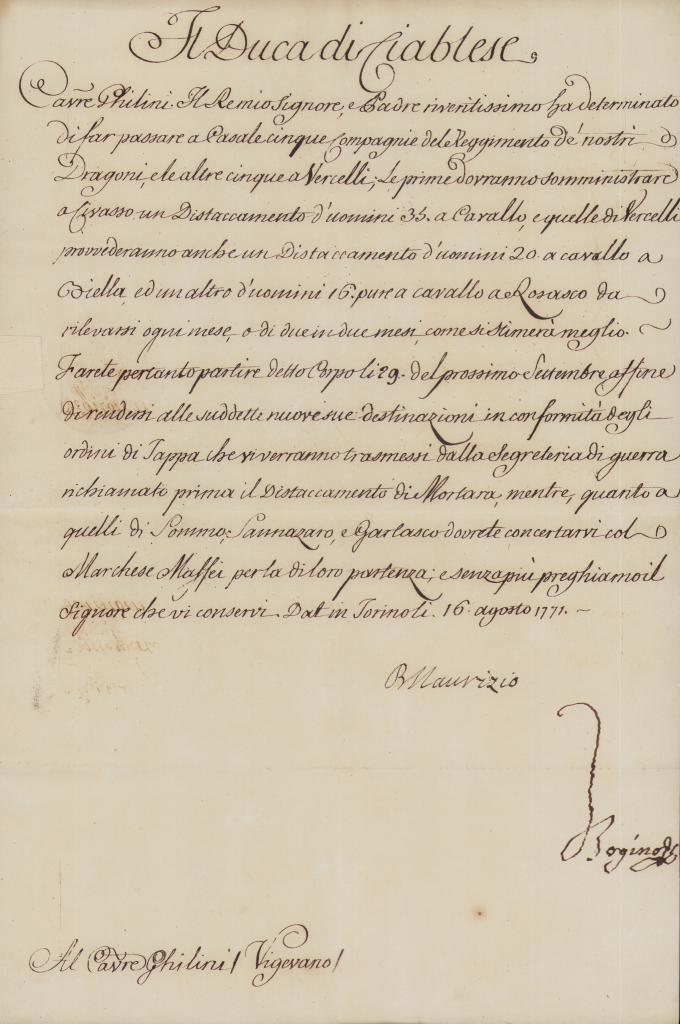 Il Duca di Ciablese,
Cav.re Ghilini. Il Re mio Signore, e Padre riveritissimo ha determinato
di far passare a Casale cinque Compagnie del Reggimento de' nostri
Dragoni, e le altre cinque a Vercelli; Le prime dovranno somministrare
a Civasso un Distaccamento d'uomini 35. a Cavallo, e quelle di Vercelli
provvederanno anche un Distaccamento d'uomini 20. a cavallo a
Biella, ed un altro d'uomini 16. pure a cavallo a Rosasco da
rilevarsi ogni mese, o di due in due mesi, come si stimerà meglio.
Farete pertanto partire detto Corpo li 29. del prossimo Settembre, affine
di rendersi alle suddette nuove sue destinazioni in conformità degli
ordini di Tappa che vi verranno trasmessi dalla Segreteria di guerra
richiamato prima il Distaccamento di Mortara, mentre, quanto a
quelli di Sommo, Sannazaro, e Garlasco dovrete concertarvi col
Marchese Maffei per la di loro partenza; e senza più preghiamo il
Signore che vi conservi. Dat in Torino li. 16. agosto 1771.
B Maurizio
Bogino
Al Cav.re Ghilini / Vigevano /